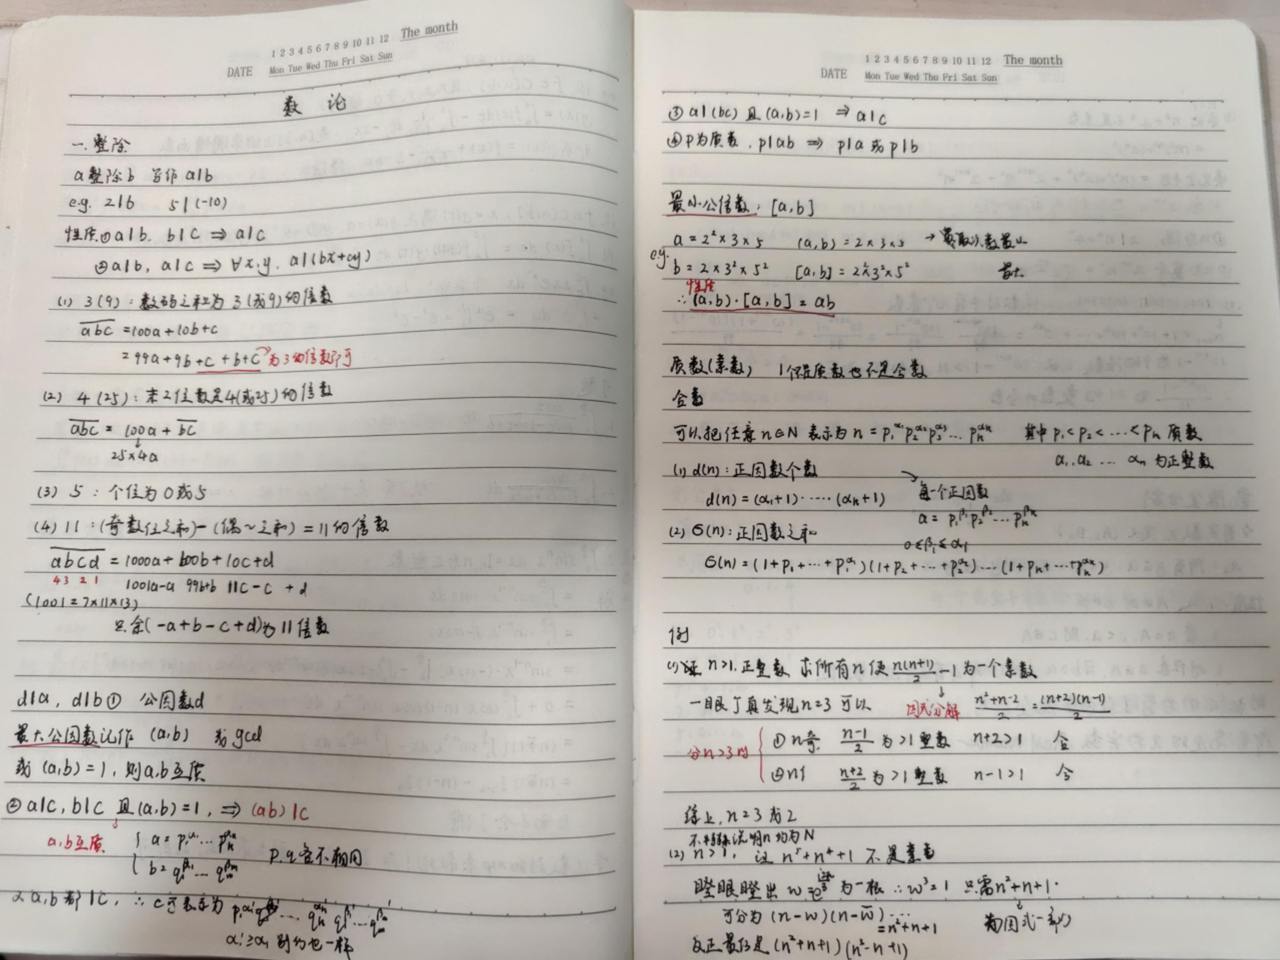 1 2 3 4 5 6 7 8 9 10 11 12 The month
DATE Mon Tue Wed Thu Fri Sat Sun
数 论
一.整除
a整除b 写作 a|b
e.g. 2|b 5|(-10)
性质①a|b. b|c ⇒ a|c
②a|b, a|c ⇒ ∀x.y. a|(bx+cy)
(1) 3(9): 数码之和为3(或9)的倍数
abc = 100a+10b+c
= 99a+9b+c+b+c 为3的倍数即可
(2) 4(25): 末2位数是4(或25)的倍数
abc = 100a + bc
25×4a
(3) 5: 个位为0或5
(4) 11: (奇数位之和)-(偶~之和) = 11的倍数
abcd = 1000a+b00b+10c+d
4 3 2 1 1001a-a 99b+b 11c-c + d
(1001=7×11×13)
只余(-a+b-c+d)为11倍数
d|a, d|b① 公因数d
最大公因数记作 (a,b) 或gcd
或(a,b)=1, 则a,b互质
②a|c, b|c 且(a,b)=1, ⇒ (ab)|c
a,b互质 { a = p₁^α₁ … pₙ^αₙ
b = q₁^β₁ … qₙ^βₙ p,q各不相同
又a,b都|c, ∴ c可表示为
α₁'≥α₁ 别的也一样
1 2 3 4 5 6 7 8 9 10 11 12 The month
DATE Mon Tue Wed Thu Fri Sat Sun
③ a|(bc) 且(a,b)=1 ⇒ a|c
④ P为质数, p|ab ⇒ p|a 或 p|b
最小公倍数: [a,b]
e.g. a = 2²×3×5 (a,b) = 2×3×5 →
b = 2×3²×5² [a,b] = 2²×3²×5² 最大
性质
∴ (a,b)·[a,b] = ab
质数(素数) 1不是质数也不是合数
合数
可以把任意n∈N 表示为 n = p₁^α₁p₂^α₂p₃^α₃…pₙ^αₙ 其中 p₁<p₂<…<pₙ 质数
α₁.α₂ … αₙ 为正整数
(1) d(n): 正因数个数
d(n) = (α₁+1)·····(αₙ+1)
每一个正因数
a = p₁^β₁p₂^β₂…pₙ^βₙ
0≤βᵢ≤αᵢ
(2) σ(n): 正因数之和
σ(n) = (1+p₁+…+p₁^α₁)(1+p₂+…+p₂^α₂)…(1+pₙ+…+pₙ^αₙ)
例
(1) n>1. 正整数 求所有n使 n(n+1)/2 -1 为一个素数
一眼了真发现n=3可以 因式分解 (n²+n-2)/2 = (n+2)(n-1)/2
分n>3时 { ①n奇 (n-1)/2 为>1整数 n+2>1 合
②n亻 (n+2)/2 为>1整数 n-1>1 合
综上, n=3或2
不特殊说明n均为N
(2) n>1, 证 n⁵+n⁴+1 不是素数
瞪眼瞪出 为一根 ∴w³=1 只需n²+n+1·
可分为 (n-w)(n-w̄)…
=n²+n+1 为因式一部分
反正最后是 (n²+n+1)(n³-n+1)